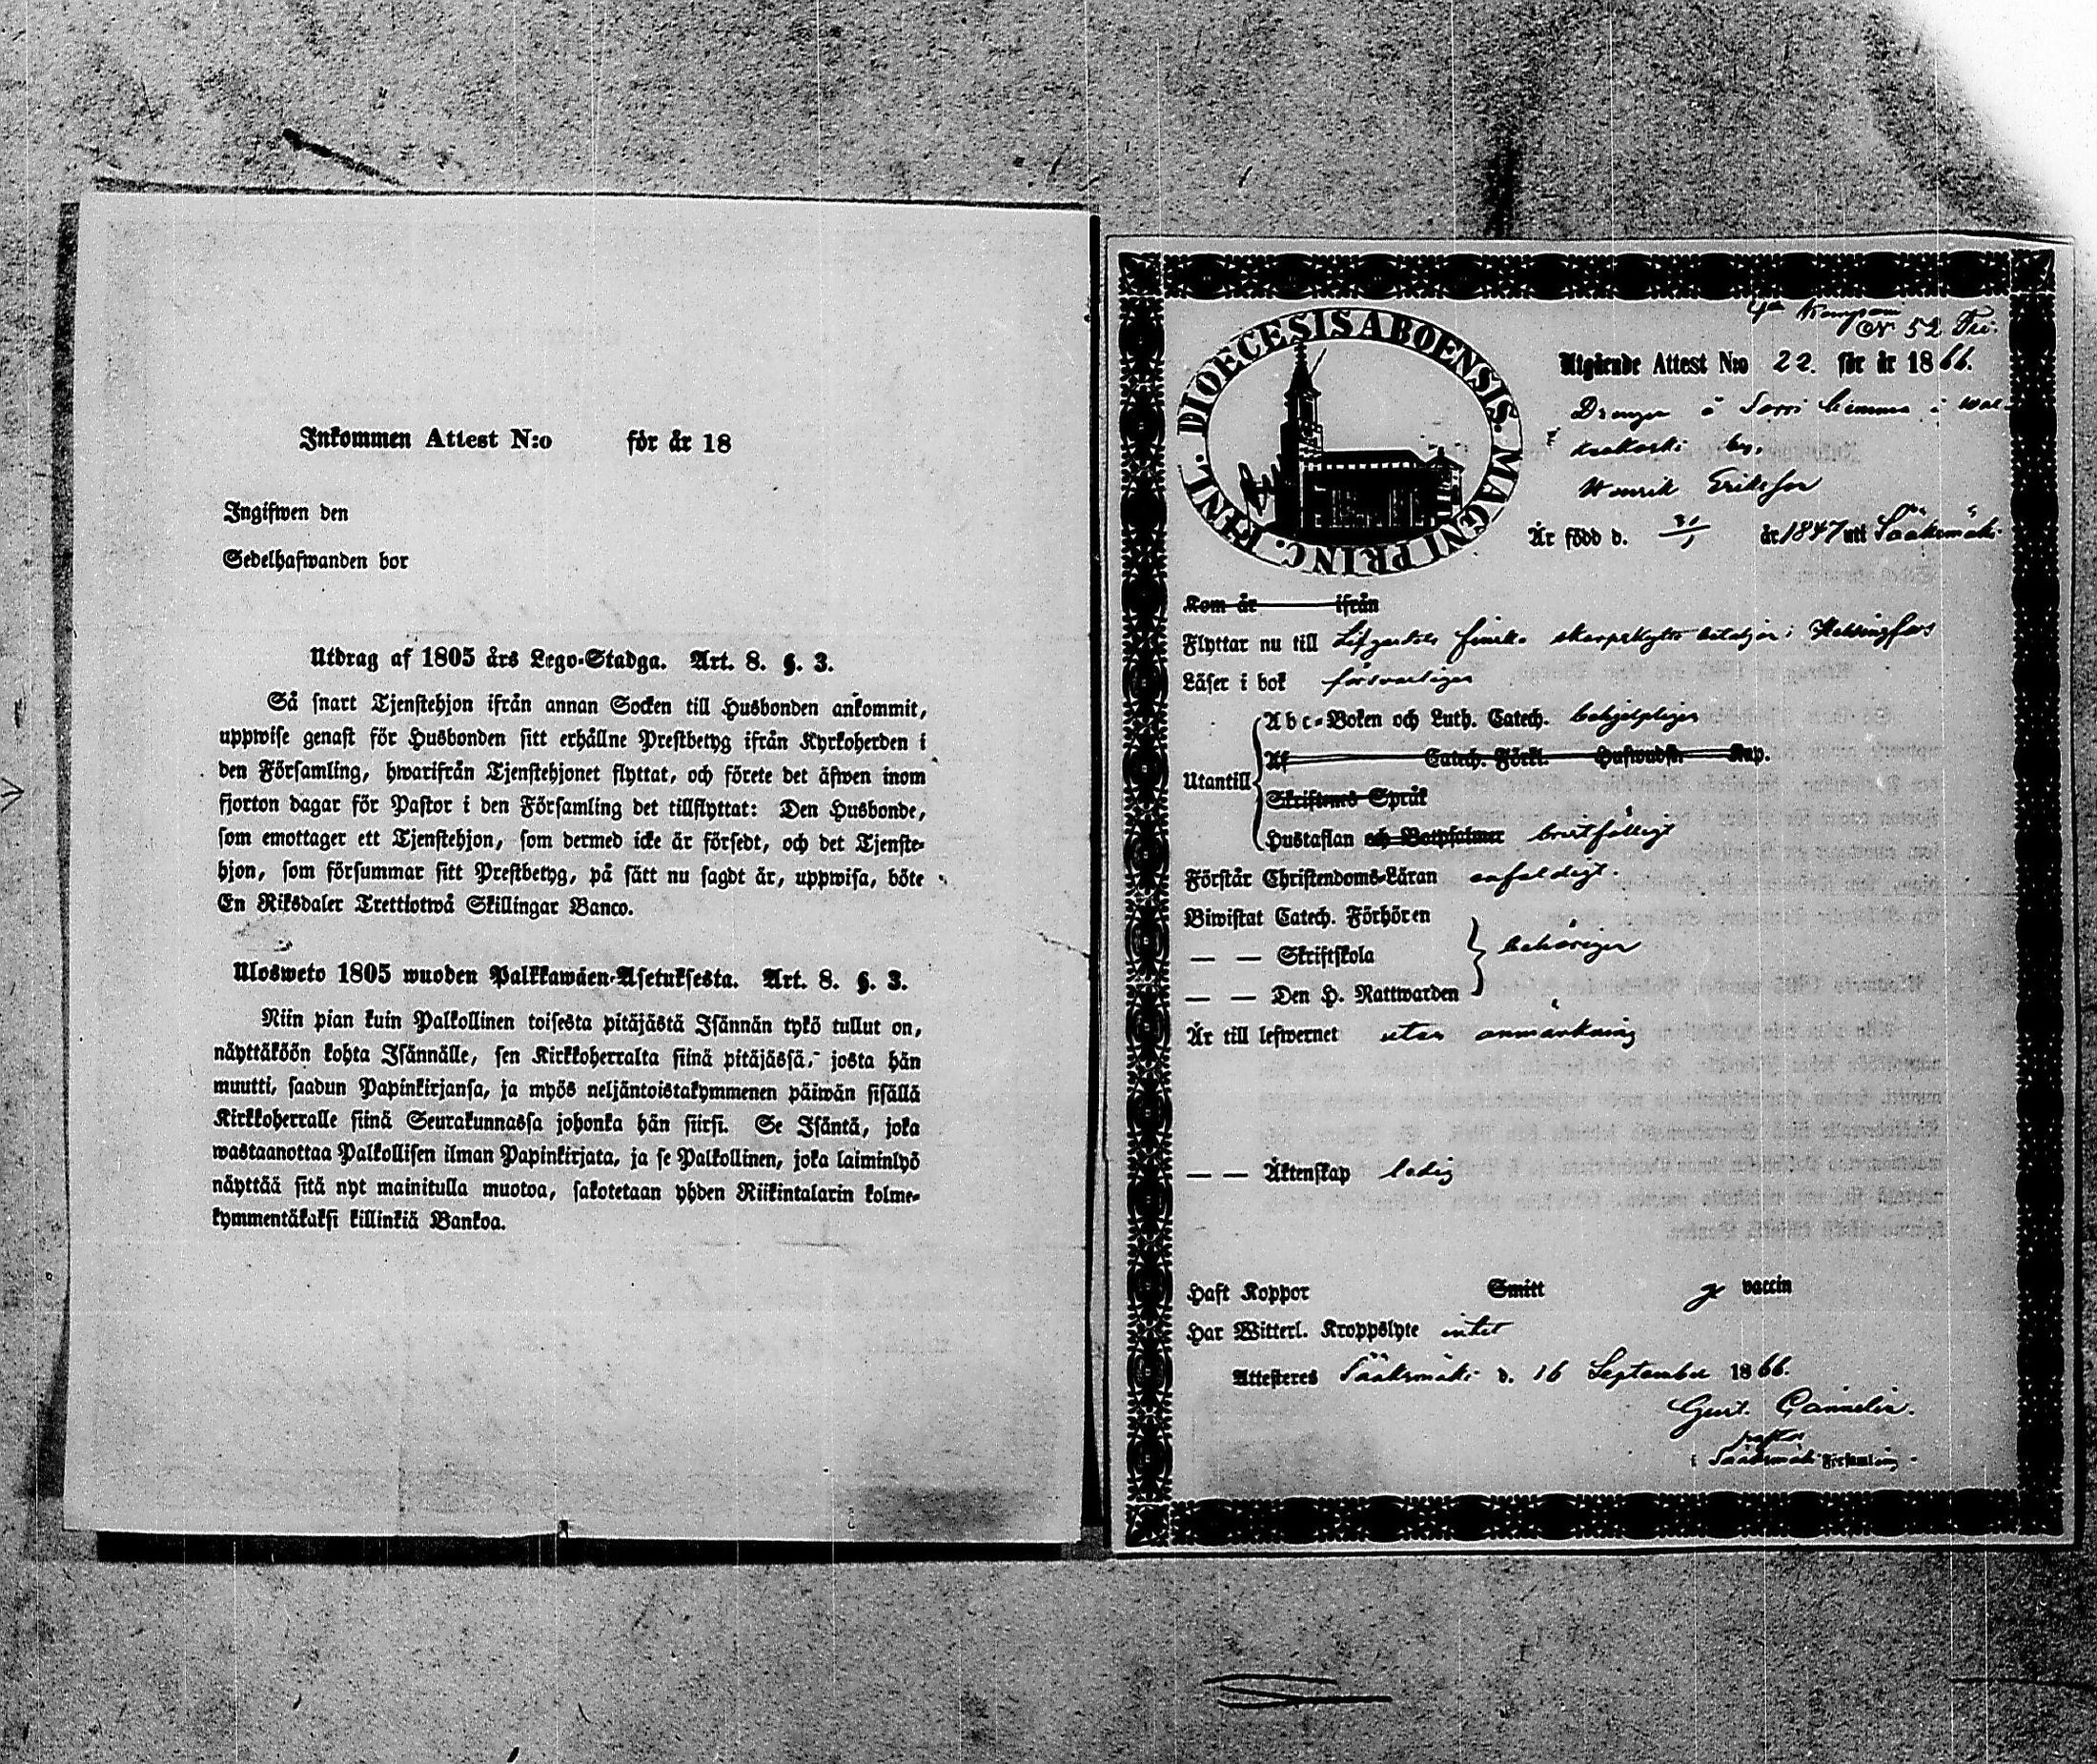 Inkommen Attest N:o för år 18
Ingifwen den
Sedelhafwanden bor
Utdrag af 1805 års Lego-Stadga. Art. 8. §. 3.
Så snart Tjenstehjon ifrån annan Socken till Husbonden ankommit,
uppwise genast för Husbonden sitt erhållne Prestbetyg ifrån Kyrkoherden i
den Församling, hwarifrån Tjenstehjonet flyttat, och förete det äfwen inom
fjorton dagar för Pastor i den Församling det tillflyttat: Den Husbonde,
som emottager ett Tjenstehjon, som dermed icke är försedt, och det Tjenste-
hjon, som försummar sitt Prestbetyg, på sätt nu sagdt är, uppwisa, böte
En Riksdaler Trettiotwå Skillingar Banco.
Ulosweto 1805 wuoden Palkkawäen-Asetuksesta. Art. 8. §. 3.
Niin pian kuin Palkollinen toisesta pitäjästä Isännän tykö tullut on,
näyttäköön kohta Isännälle, sen Kirkkoherralta siinä pitäjässä, josta hän
muutti, saadun Papinkirjansa, ja myös neljäntoistakymmenen päiwän sisällä
Kirkkoherralle siinä Seurakunnassa johonka hän siirsi. Se Isäntä, joka
wastaanottaa Palkollisen ilman Papinkirjata, ja se Palkollinen, joka laiminlyö
näyttää sitä nyt mainitulla muotoa, sakotetaan yhden Riikintalarin kolme-
kymmentäkaksi killinkiä Bankoa.
4de Kompani
N 52
DIOECESIS ABOENSIS. MAGNI PRINC. FINL.
Utgående Attest N:o 22. för år 1866.
Drengen å Sorri hemman i
by,
Henrik Eriksson
Är född d. 31/1 år 1847 uti Sääksmäki
Kom år ifrån
Flyttar nu till Lifgardets finska skarpskytte bataljon i Helsingfors
Läser i bok försvarligen
Utantill
Abc-Boken och Luth. Catech. behjelpligen
Af Catech. Förkl. Hufwudst. Kap.
Skriftenes Språk
Hustaflan och Botpsalmer bristfälligt
Förstår Christendoms-Läran enfaldigt.
Biwistat Catech. Förhören
— — Skriftskola behörigen
— — Den H. Nattwarden
Är till lefwernet utan anmärkning
— — Äktenskap ledig
Haft Koppor Smitt vaccin
Har Witterl. Kroppslyte intet
Attesteres Sääksmäki d. 16 September 1866.
Gust. Cannelin.
pastor
i Sääksmäki Församling.